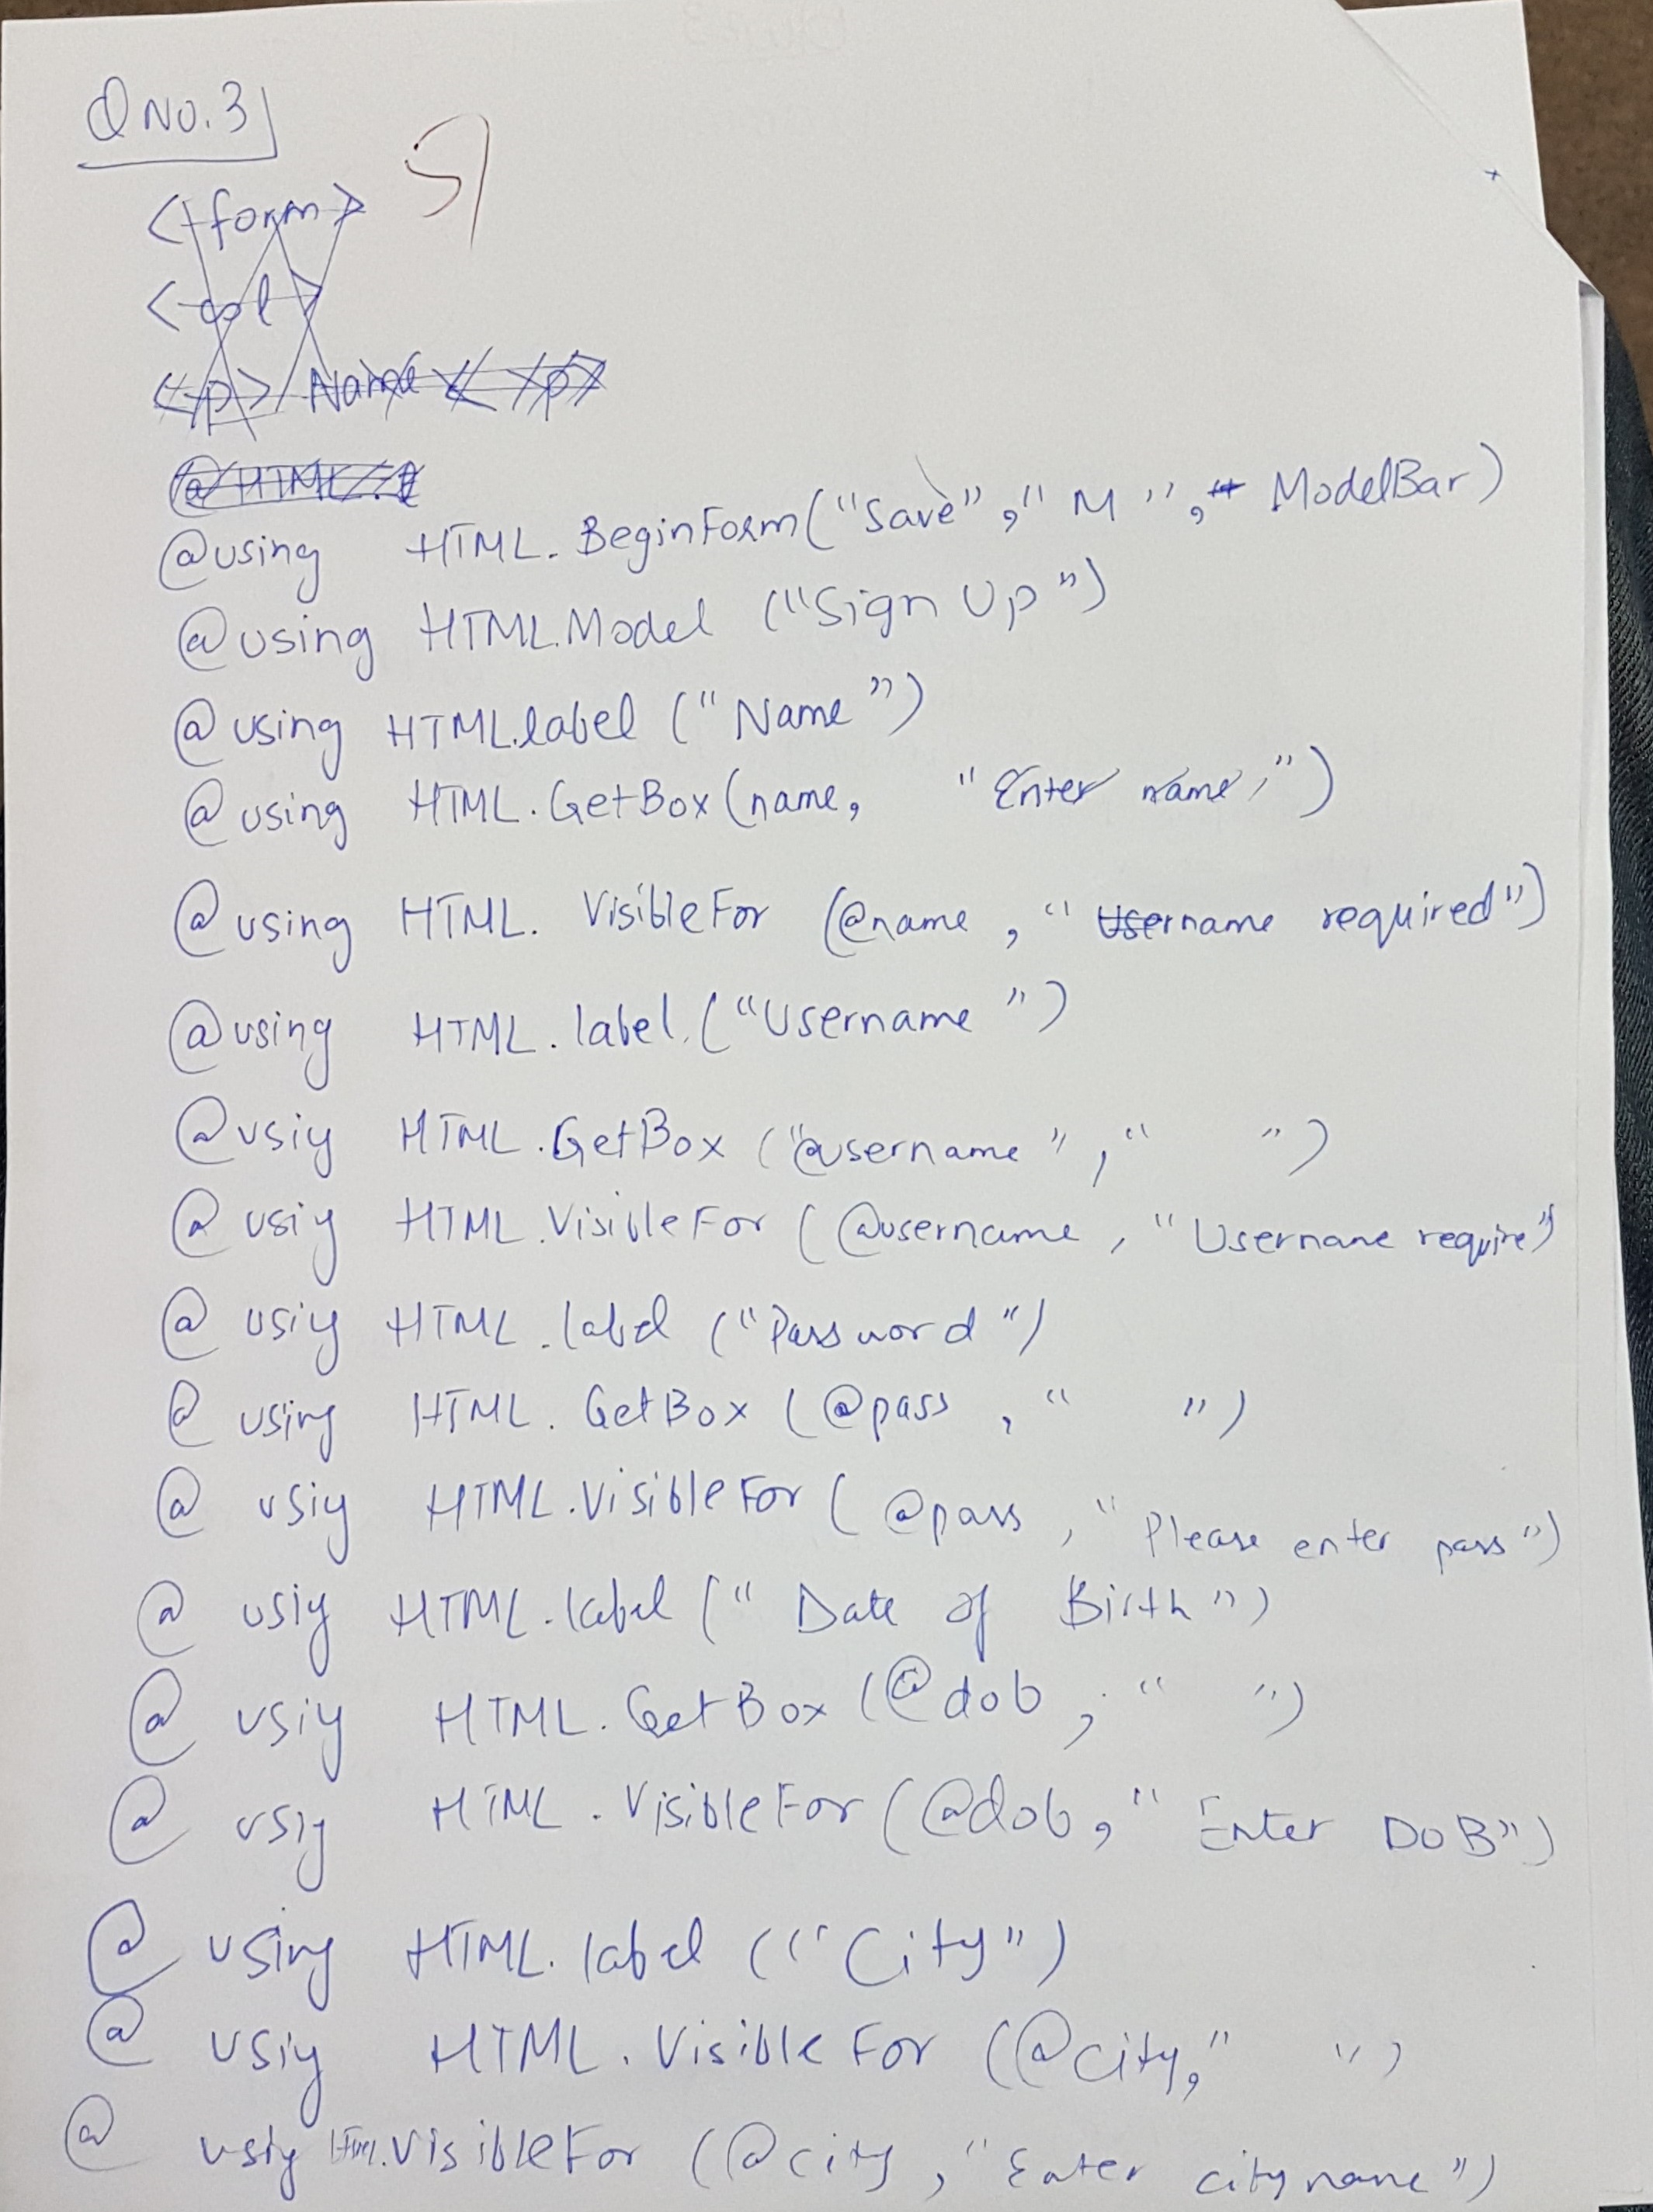 Q No. 3
<form>
<ol>
<p> Name </p>
@HTML.
@using HTML.BeginForm("Save", "M", ModelBar)
@using HTML.Model ("Sign Up")
@using HTML.label ("Name")
@using HTML.GetBox(name, "Enter name;")
@using HTML. VisibleFor (@name, "Username required")
@using HTML. label. ("Username")
@using HTML.GetBox ("@username", " ")
@using HTML.VisibleFor (@username, "Username require")
@using HTML.label ("Password")
@using HTML. GetBox (@pass, " ")
@using HTML.VisibleFor (@pass, "Please enter pass")
@using HTML.label (" Date of Birth")
@using HTML.GetBox (@dob, " ")
@using HTML. VisibleFor (@dob, "Enter DOB")
@using HTML. label ("City")
@using HTML. VisibleFor (@city, " ")
@using HTML.VisibleFor (@city, "Enter city name")